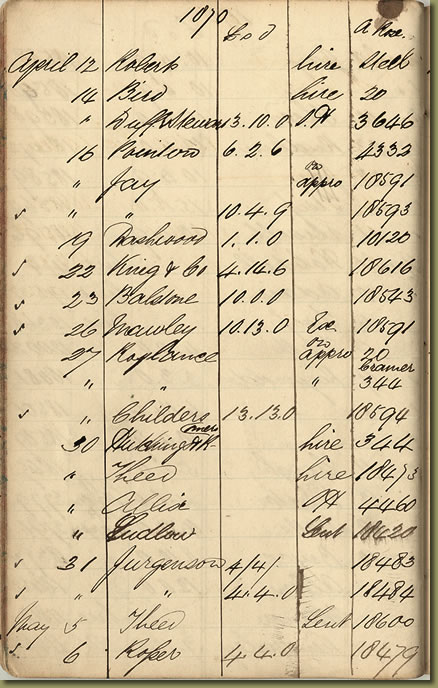 1870
£ s d
April 12 Roberts hire
14 Bird hire 20
" Duff & Stewart 3.10.0 O.H 3646
16 Pointon 6.2.6 4332
" Jay on appro 18591
✓ " " 10.4.9 18593
19 Dashwood 1.1.0 10120
✓ 22 King & Co 4.14.6 18616
✓ 23 Balstone 10.0.0 18543
✓ 26 Mawley 10.13.0 18591
27 Roylance on appro 20
Cramer
" " " 344
✓ " Childers 13.13.0 18594
30 hire 344
" Theed hire 18473
" Allix OH 4460
" Ludlow Lent 18420
✓ 31 Jurgenson 4/4/ 18483
✓ " " 4.4.0 18484
May 5 Theed Lent 18600
✓ 6 Roper 4.4.0 18479